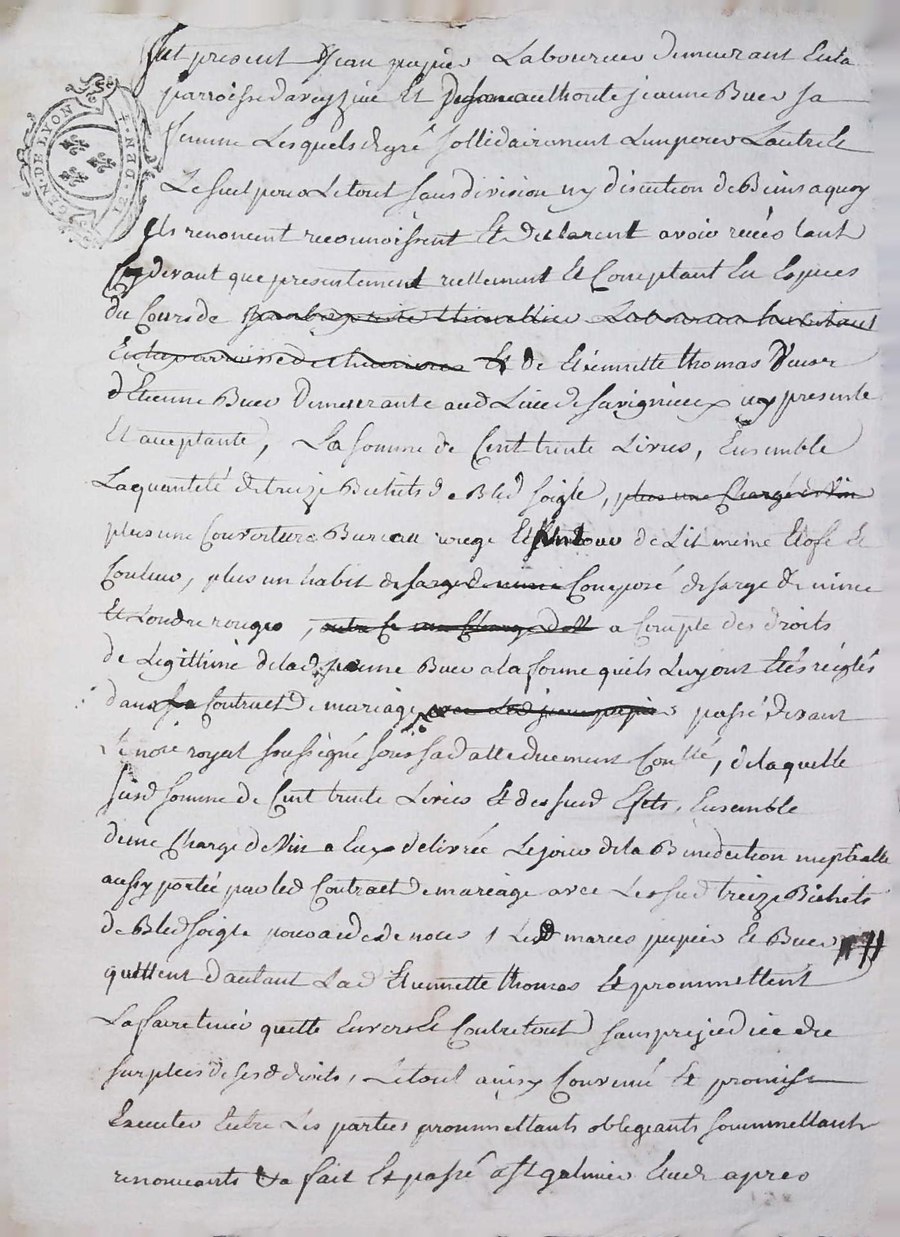 GEN. DE LYON
12. DEN.
fut present Jean papier Laboureur demeurant En la
parroisse daveyzieu Et de son authorité jeanne Buer sa
femme Lesquels de gré sollidairement Lun pour Lautre le
Le seul pour Le tout sans division ny discution de Biens a quoy
ils renoncent reconnoissent Et declarent avoir reçeu tant
Cy devant que presentement reellement Et Comptant En Espices
du Cours de Laboureur habitant
En la parroisse de Et de Etiennette thomas veuve
d'Etienne Buer demeurante aud Lieu de savignieux icy presente
Et acceptante, La somme de Cent trente Livres, Ensemble
La quantité de treize Bichets de Bled soigle, plus une Charge de vin
plus une Couverture Bureau rouge Et un tour de Lit meme Etofe Et
Couleur, plus un habit de sarge de Composé de sarge de nime
Et Londre rouge, outre Ce une Charge de a Compte des droits
de Legittime de lad jeanne Buer a la forme quils Luy ont Etés réiglés
dans Contract de mariage avec Led jean papier passé devant
Le nore royal soussigné sous sa datte duement Conllé, de laquelle
susd somme de Cent trente Livres Et des susd Efets, Ensemble
dune Charge de vin a Eux delivrée Le jour de la Benediction nuptialle
aussy portée par led Contract de mariage avec Les sud treize Bichets
de Bled soigle Lesd mariés papier Et Buer
quittent dautant Lad Etiennette thomas Et prommettent
La faire tenir quitte Envers Et Contre tout sans prejudice du
surplus de sesd droits, Le tout ainsy Convenu Et promis
Executer Entre Les parties prommettants obligeants soummettants
renonceants Et a fait Et passé a St galmier Etude apres